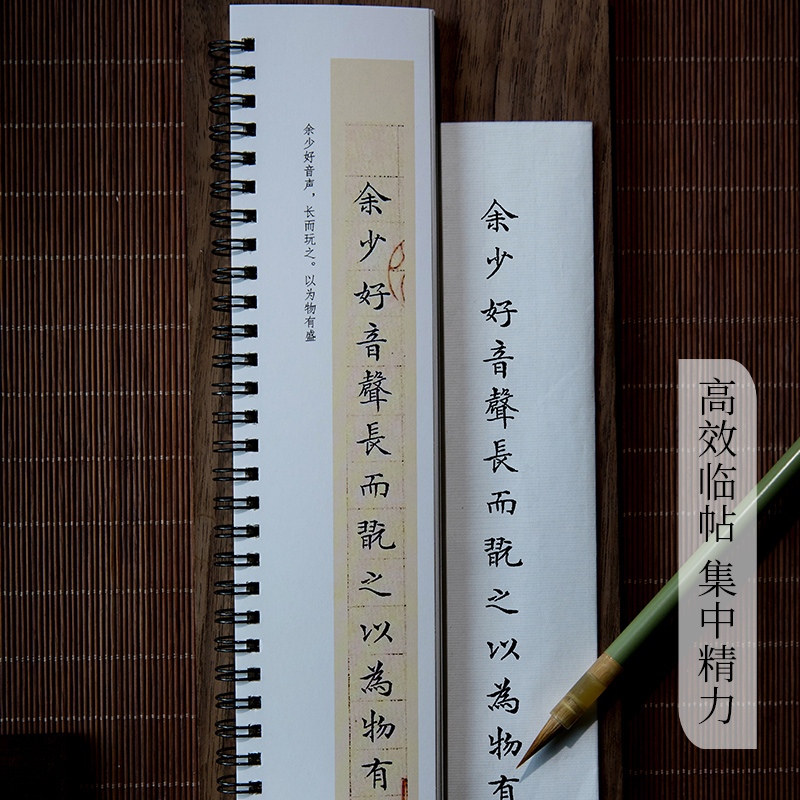 余少好音声，长而玩之。以为物有盛
余少好音聲長而翫之以為物有
余少好音聲長而翫之以為物有
高效临帖 集中精力